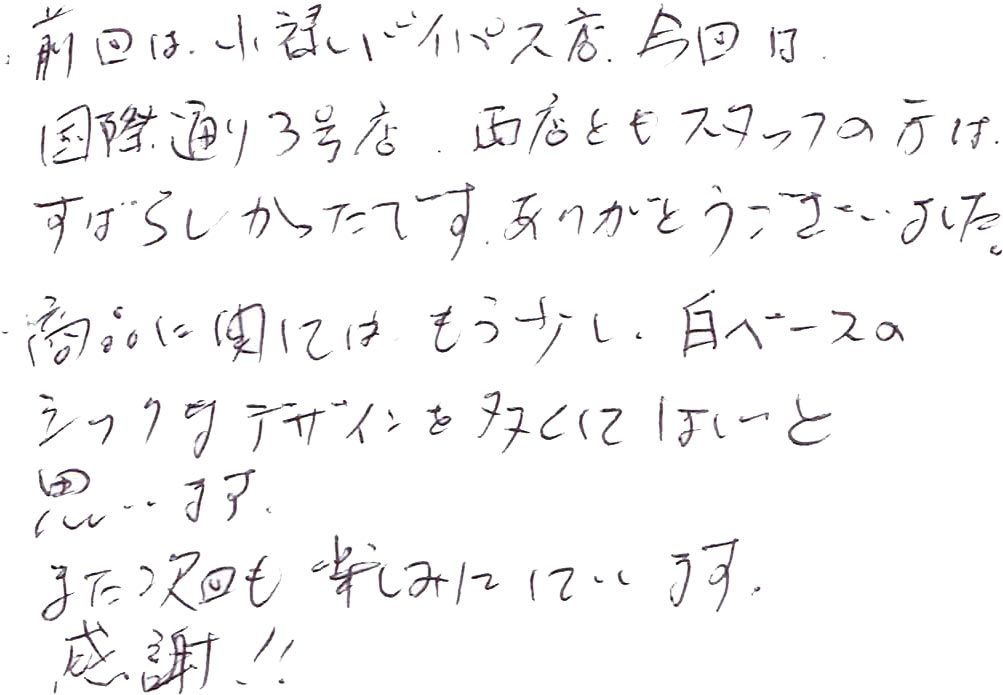 前回は、小禄バイパス店、今回は、
国際通り3号店、両店ともスタッフの方は、
すばらしかったです。ありがとうございました。
商品に関しては、もう少し、白ベースの
シックなデザインを多くしてほしいと
思います。
また次回も楽しみにしています。
感謝!!